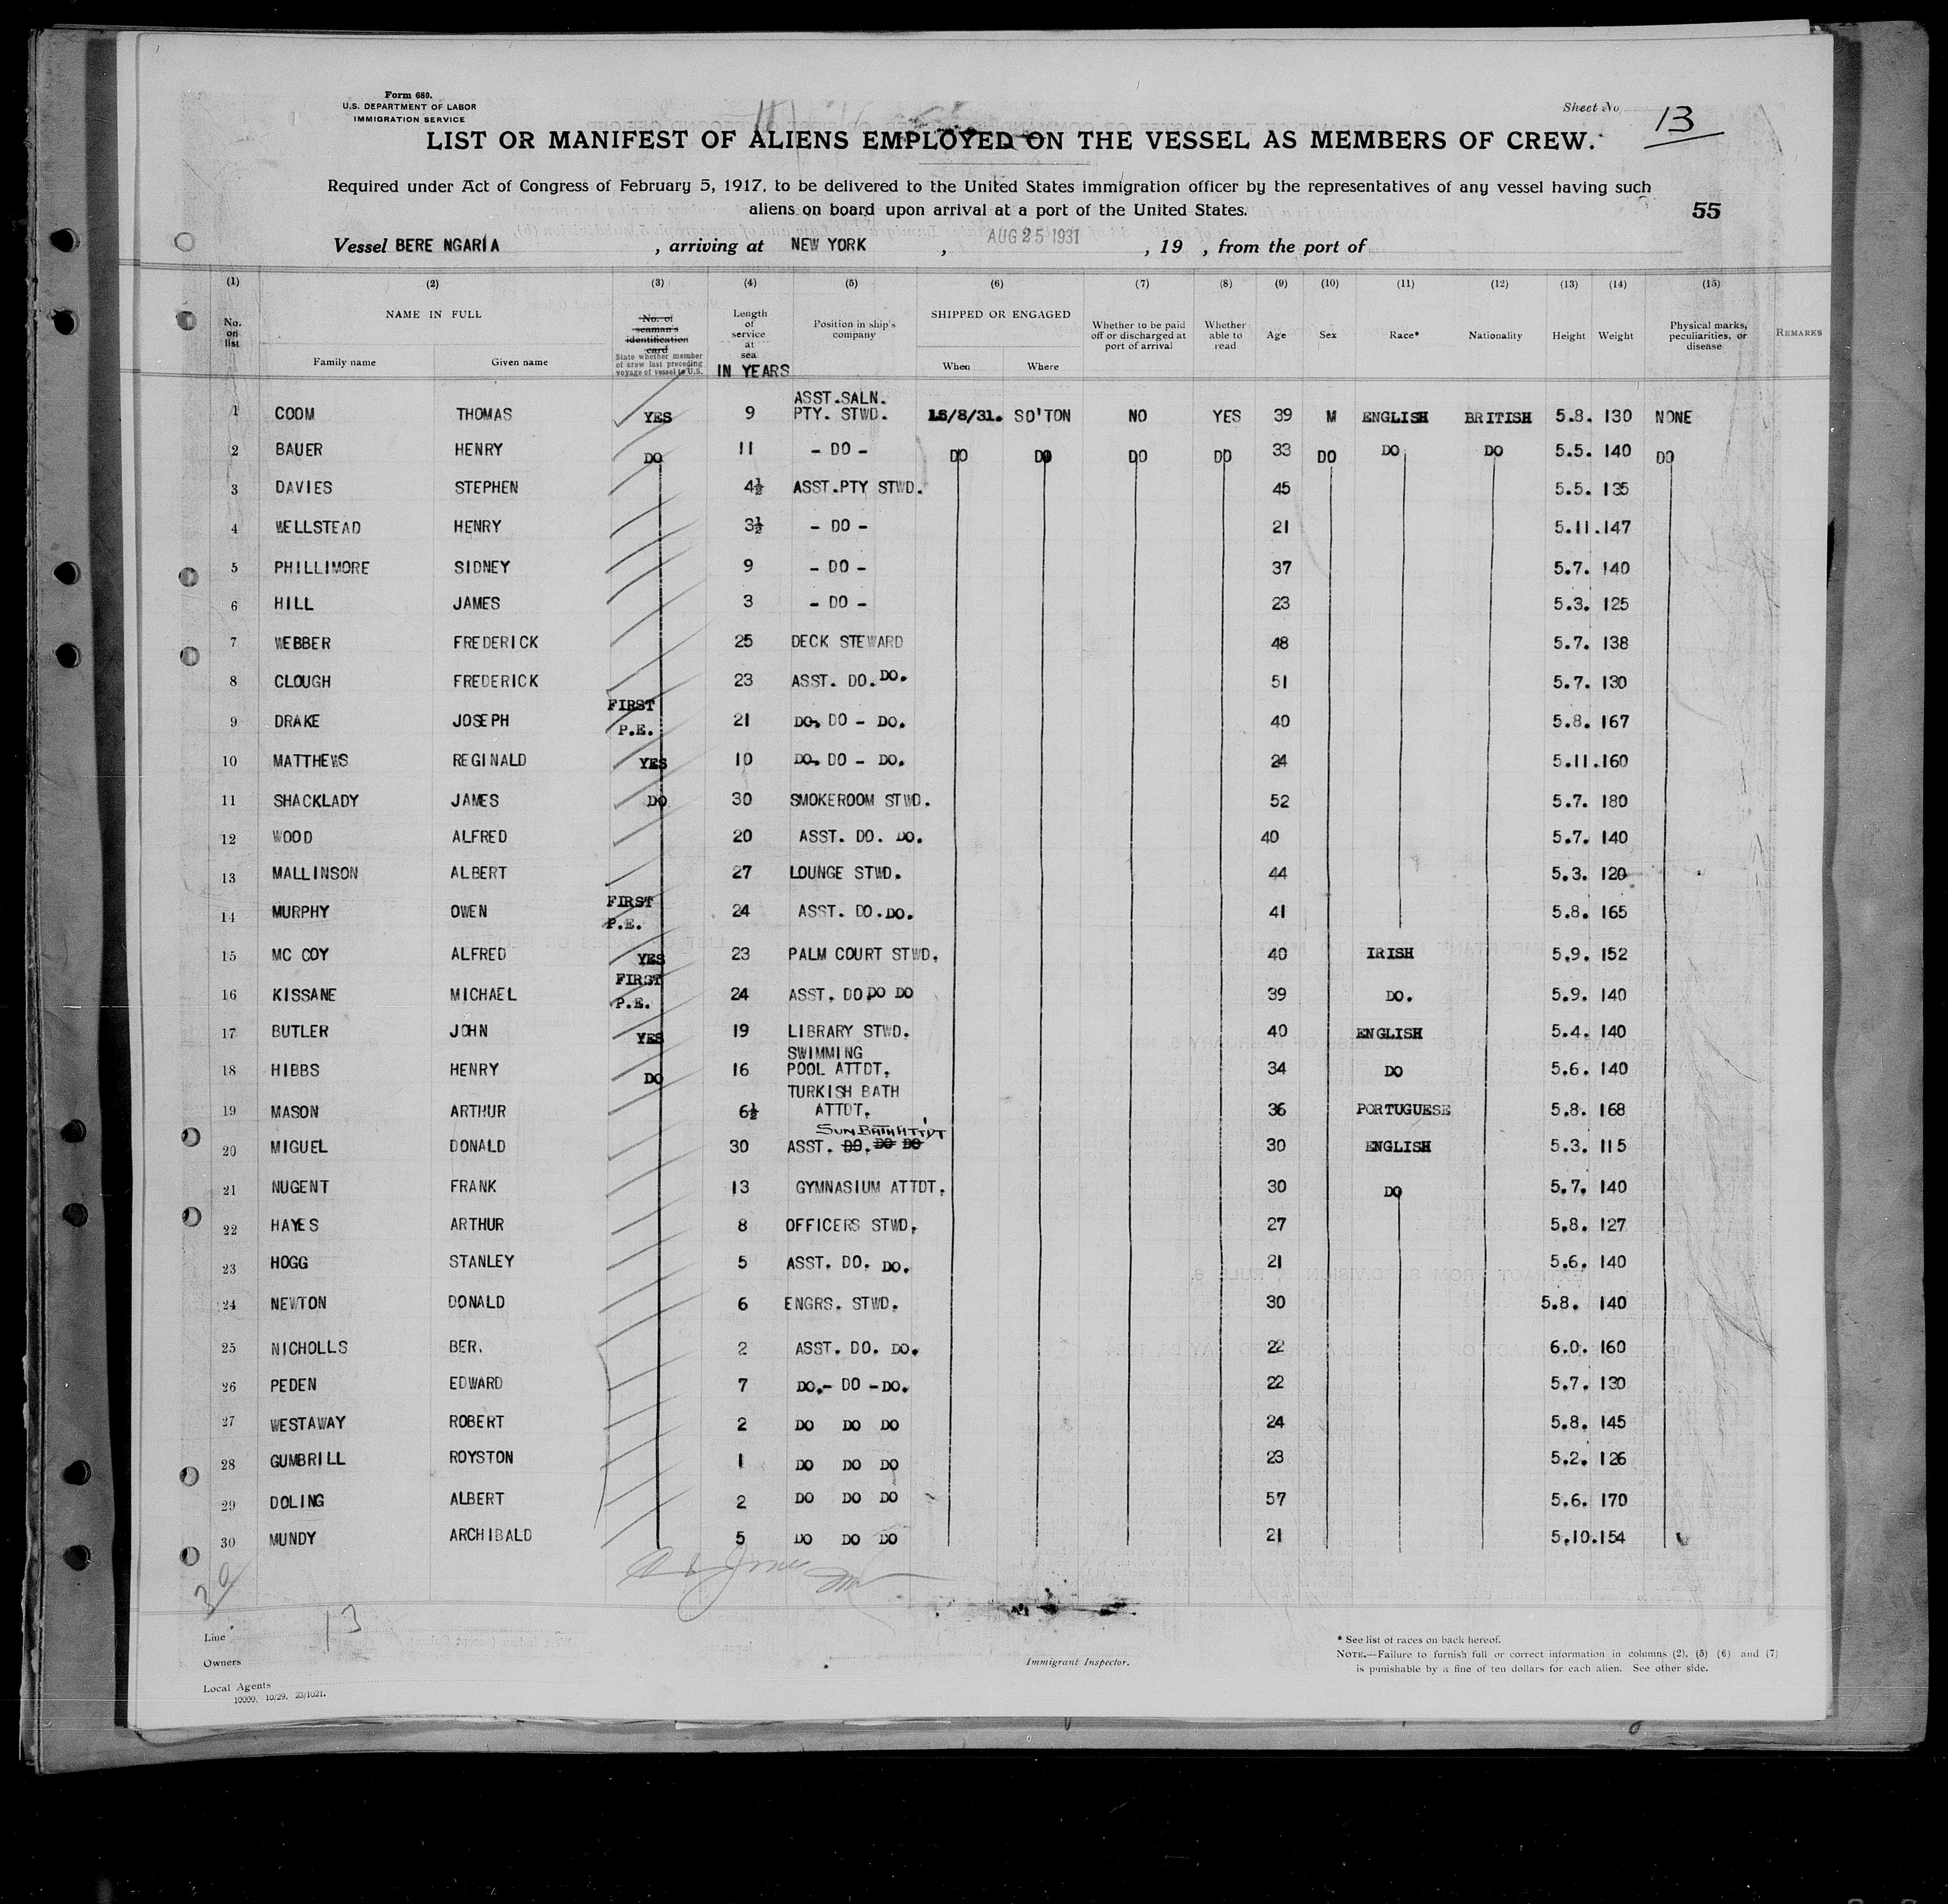 Form 680.
U.S. DEPARTMENT OF LABOR
IMMIGRATION SERVICE
Sheet No. 13
LIST OR MANIFEST OF ALIENS EMPLOYED ON THE VESSEL AS MEMBERS OF CREW.
Required under Act of Congress of February 5, 1917, to be delivered to the United States immigration officer by the representatives of any vessel having such
aliens on board upon arrival at a port of the United States.
55
Vessel BERE NGARIA , arriving at NEW YORK , AUG 25 1931 , 19 , from the port of
(1) (2) (3) (4) (5) (6) (7) (8) (9) (10) (11) (12) (13) (14) (15)
No. on list NAME IN FULL Family name Given name No. of seaman's identification card State whether member of crew last preceding voyage of vessel to U.S. Length of service at sea IN YEARS Position in ship's company SHIPPED OR ENGAGED When Where Whether to be paid off or discharged at port of arrival Whether able to read Age Sex Race* Nationality Height Weight Physical marks, peculiarities, or disease REMARKS
1 COOM THOMAS YES 9 ASST.SALN. PTY. STWD. /8/31. SO'TON NO YES 39 M ENGLISH BRITISH 5.8. 130 NONE
2 BAUER HENRY DO 11 - DO - DO DO DO DO 33 DO DO DO 5.5. 140 DO
3 DAVIES STEPHEN 4½ ASST.PTY STWD. 45 5.5. 135
4 WELLSTEAD HENRY 3½ - DO - 21 5.11.147
5 PHILLIMORE SIDNEY 9 - DO - 37 5.7. 140
6 HILL JAMES 3 - DO - 23 5.3. 125
7 WEBBER FREDERICK 25 DECK STEWARD 48 5.7. 138
8 CLOUGH FREDERICK 23 ASST. DO. DO. 51 5.7. 130
9 DRAKE JOSEPH FIRST P.E. 21 DO. DO - DO. 40 5.8. 167
10 MATTHEWS REGINALD YES 10 DO. DO - DO. 24 5.11.160
11 SHACKLADY JAMES DO 30 SMOKEROOM STWD. 52 5.7. 180
12 WOOD ALFRED 20 ASST. DO. DO. 40 5.7. 140
13 MALLINSON ALBERT 27 LOUNGE STWD. 44 5.3. 120
14 MURPHY OWEN FIRST P.E. 24 ASST. DO.DO. 41 5.8. 165
15 MC COY ALFRED YES 23 PALM COURT STWD. 40 IRISH 5.9. 152
16 KISSANE MICHAEL FIRST P.E. 24 ASST. DO DO DO 39 DO. 5.9. 140
17 BUTLER JOHN YES 19 LIBRARY STWD. 40 ENGLISH 5.4. 140
18 HIBBS HENRY DO 16 SWIMMING POOL ATTDT. 34 DO 5.6. 140
19 MASON ARTHUR 6½ TURKISH BATH ATTDT. 36 PORTUGUESE 5.8. 168
20 MIGUEL DONALD 30 ASST. DO. DO DO SUN BATH ATTDT 30 ENGLISH 5.3. 115
21 NUGENT FRANK 13 GYMNASIUM ATTDT. 30 DO 5.7. 140
22 HAYES ARTHUR 8 OFFICERS STWD. 27 5.8. 127
23 HOGG STANLEY 5 ASST. DO. DO. 21 5.6. 140
24 NEWTON DONALD 6 ENGRS. STWD. 30 5.8. 140
25 NICHOLLS BER. 2 ASST. DO. DO. 22 6.0. 160
26 PEDEN EDWARD 7 DO.- DO -DO. 22 5.7. 130
27 WESTAWAY ROBERT 2 DO DO DO 24 5.8. 145
28 GUMBRILL ROYSTON 1 DO DO DO 23 5.2. 126
29 DOLING ALBERT 2 DO DO DO 57 5.6. 170
30 MUNDY ARCHIBALD 5 DO DO DO 21 5.10.154
30
13
Line
Owners
Local Agents
10000, 10/29. 23/1021.
Immigrant Inspector.
* See list of races on back hereof.
NOTE.—Failure to furnish full or correct information in columns (2), (5) (6) and (7)
is punishable by a fine of ten dollars for each alien. See other side.